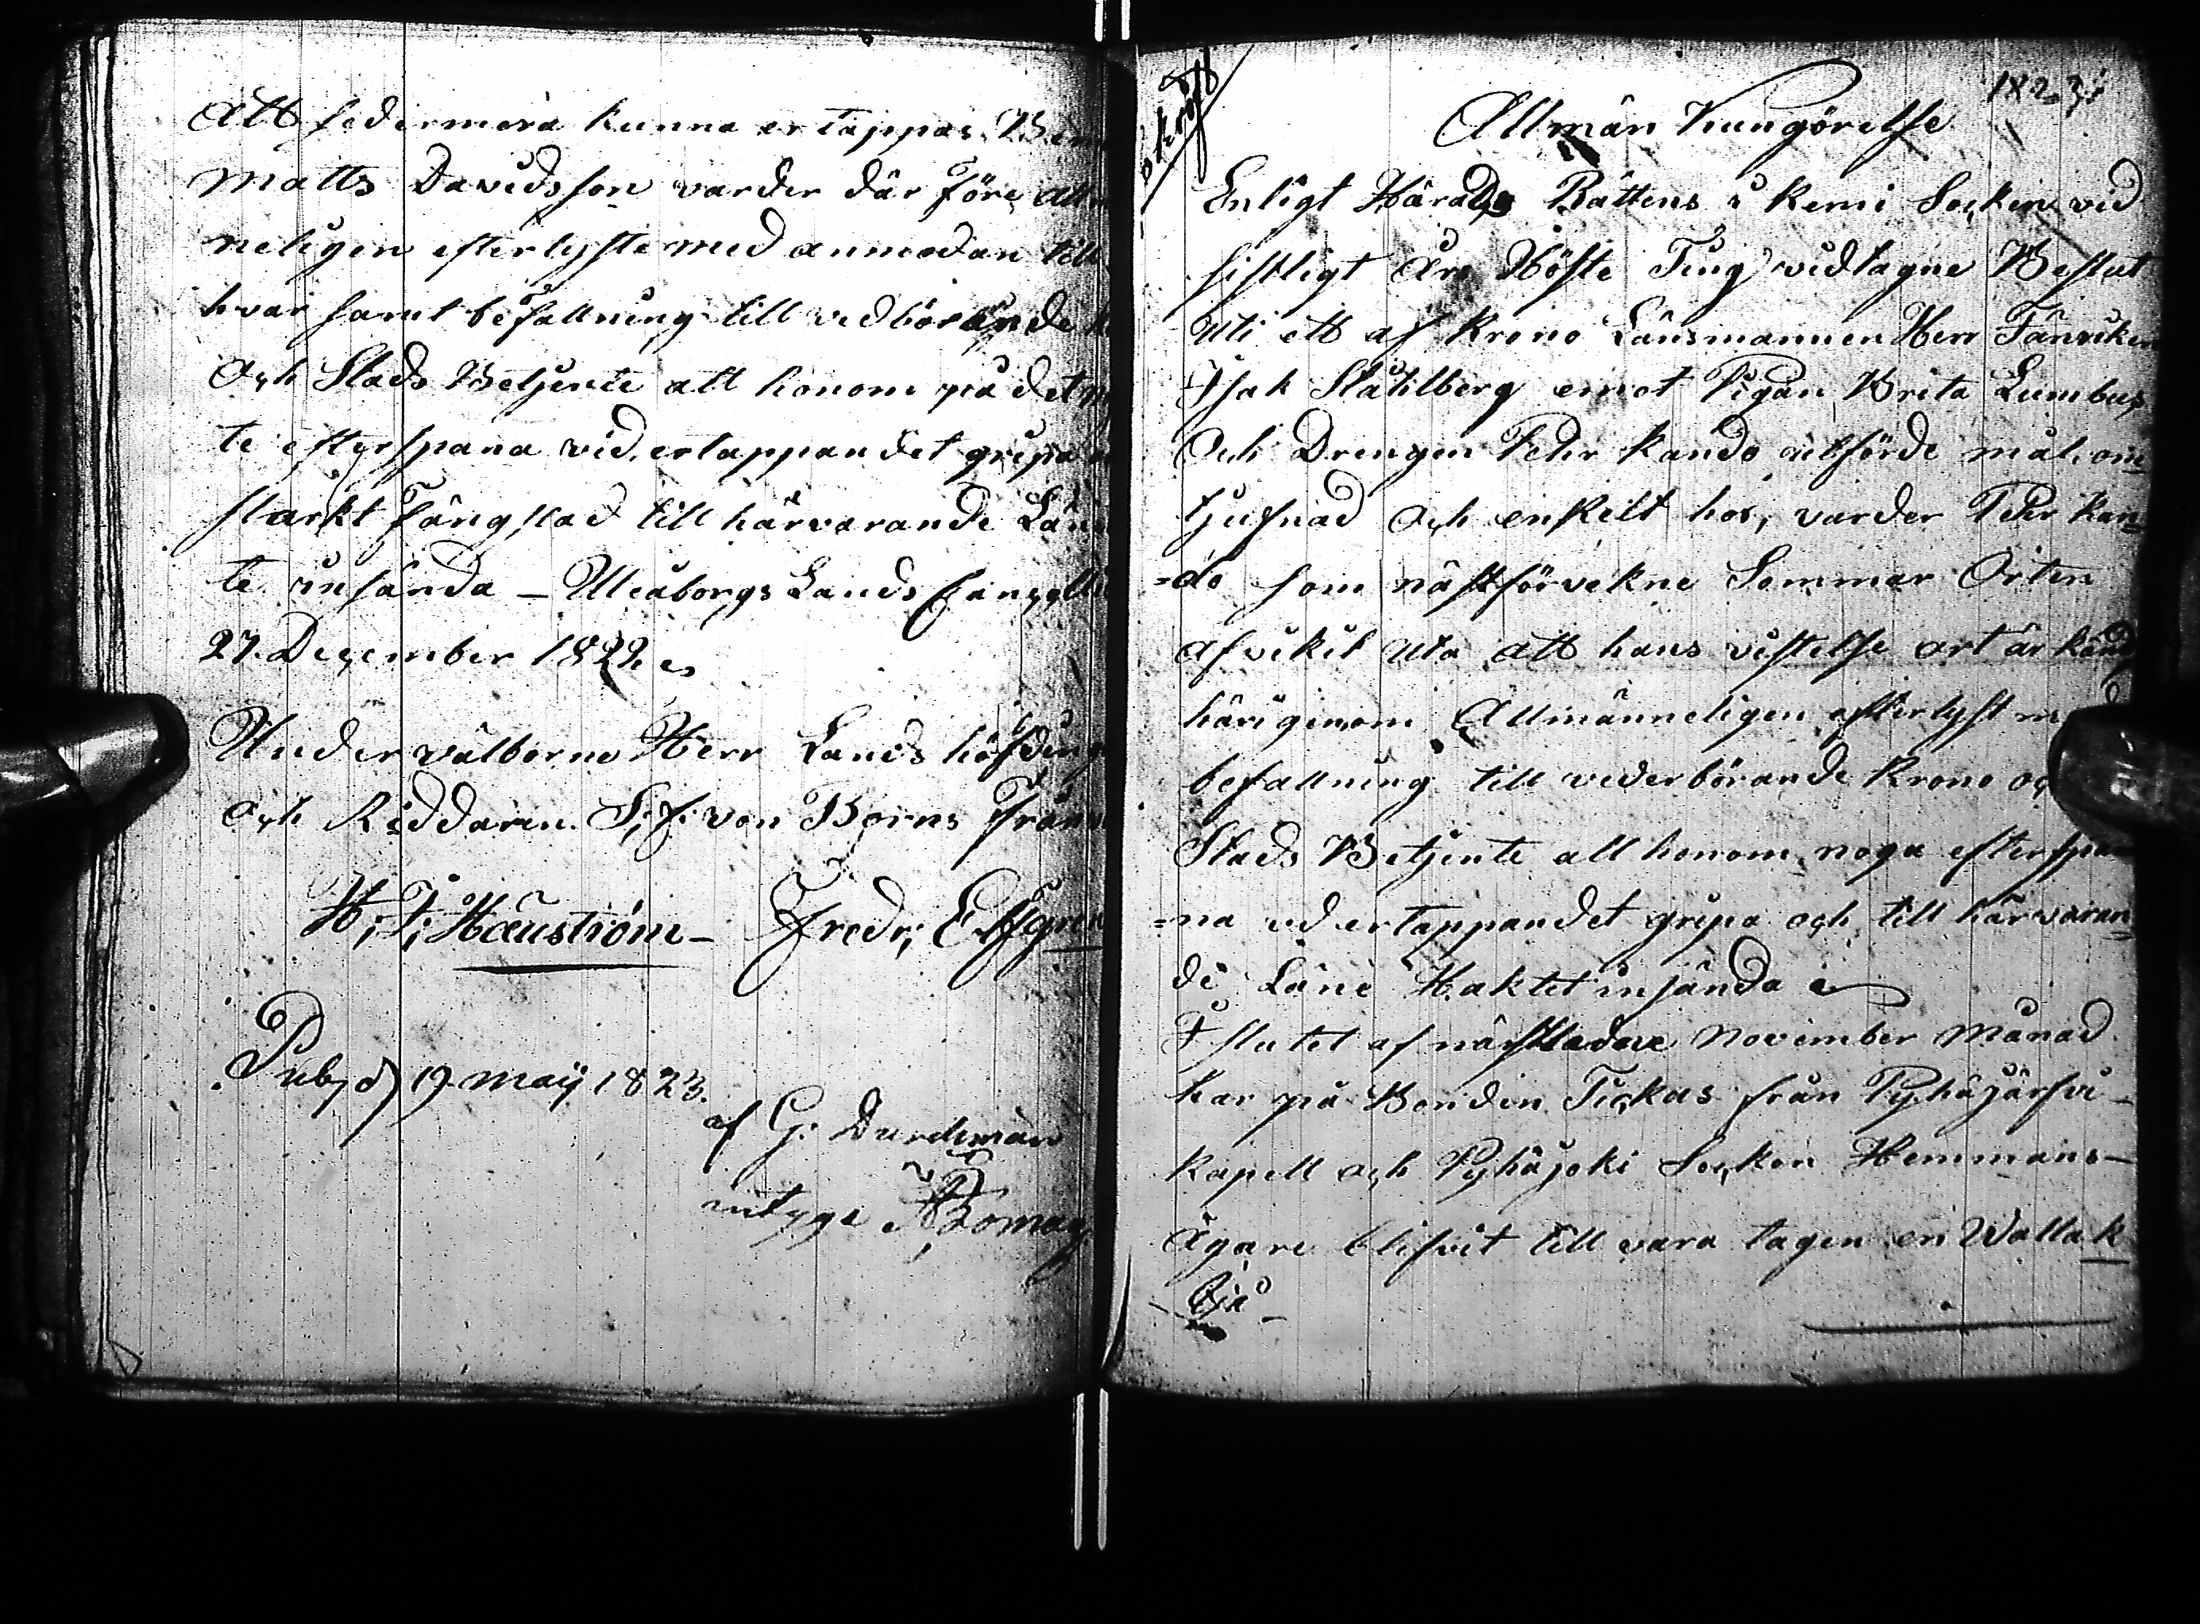 Att sedermera kunna ertappas. B
Matts Davidsson varder där före all
neligen efterlyste med anmodan till
hvar samt befallning till vedbörande
Och Stads Betjente att honom på det
te efterspana vid ertappandet gripa
starkt Fängslad till härvarande Län
te insända – Uleåborgs Lands Cancelli
27. December 1822
Under välborne Herr Lands höfding
och Riddaren. S: F: von Borns Från
H; F; Häuström – Fredr; Elfgren
Pub, d 19 maij 1823.
af G: Durchman
intyga
1823:
Allmän Kungörelse
Enligt Härads Rättens i Kemi Socken vid
sistligt Års Höste Ting vidtagne Beslut
Uti ett af Krono Länsmannen Herr Fänriken
Isak Ståhlberg emot Pigan Brita Lumbus
Och Drengen Pehr Kando utförde mål om
tjufnad Och enkelt hor, varder Pehr Kan=
=do som nästförvekne Sommar Orten
afvikit uta att hans vistelse ort är känd
härigenom Allmänneligen efterlyst med
befallning till vederbörande Krono och
Stads Betjente att honom noga efterspa
=na vid ertappandet gripa och till härvaran=
de Läne Häktet insända
I slutet af nästledne November månad
har på Bonden Tickas från Pyhäjärfvi
Kapell och Pyhäjoki Socken Hemmans –
Ägare blifvit till vara tagen en Wallak